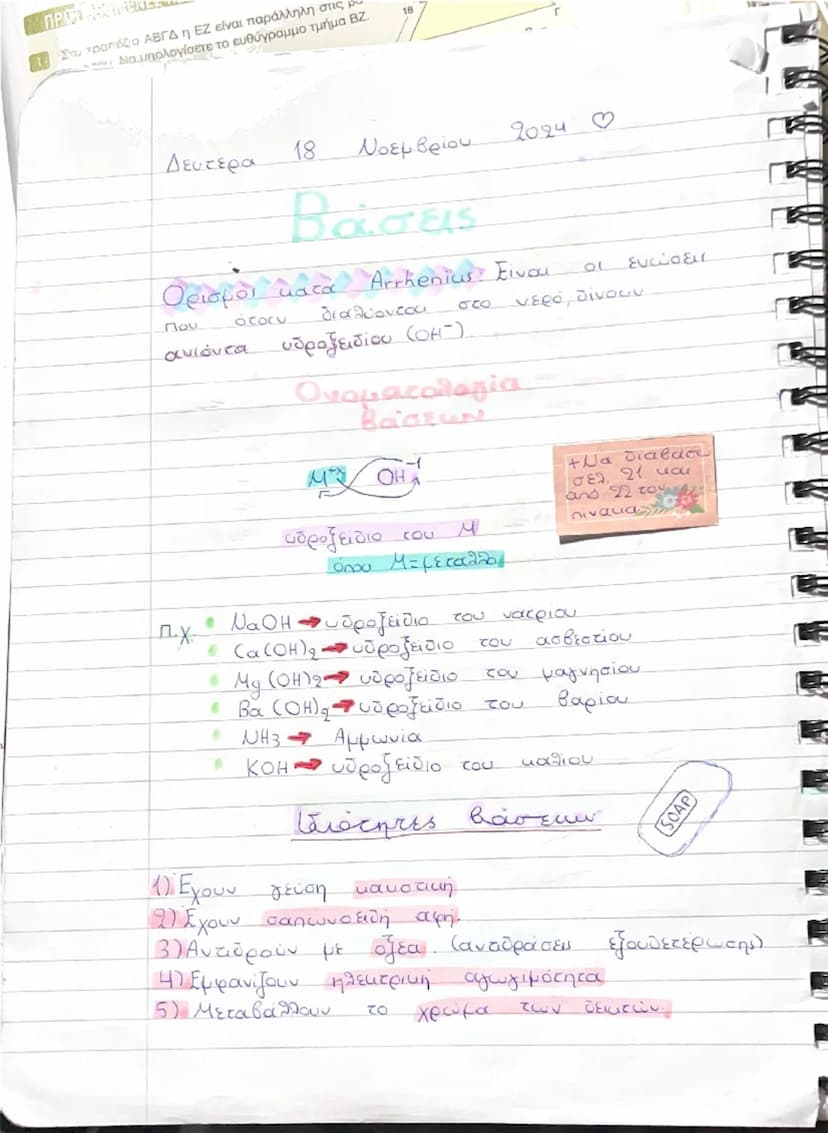 1. Στο τραπέζιο ΑΒΓΔ η ΕΖ είναι παράλληλη στις
Να υπολογίσετε το ευθύγραμμο τμήμα ΒΖ.
18
Γ
Δευτερα 18 Νοεμβρίου 2024 ♡
Βάσεις
Ορισμοί κατά Arrhenius: Είναι οι ενώσεις
που όταν διαλύονται στο νερό, δίνουν
ανιόντα υδροξειδίου (OH⁻)
Ονοματολογία
βάσεων
M⁺ˣ OH⁻¹
+Να διαβάσω
σελ. 21 και
από 22 τον
πινακα
υδροξείδιο του M
όπου M=μέταλλο
π.χ. • NaOH → υδροξείδιο του νατριου
• Ca(OH)₂ → υδροξείδιο του ασβεστίου
• Mg(OH)₂ → υδροξείδιο του μαγνησίου
• Ba(OH)₂ → υδροξείδιο του βαρίου
• NH3 → Αμμωνία
• KOH → υδροξείδιο του καλιου
Ιδιότητες βάσεων
SOAP
1) Έχουν γεύση καυστική
2) Έχουν σαπωνοειδή αφή.
3) Αντιδρούν με οξέα. (αντιδράσεις εξουδετέρωσης)
4) Εμφανίζουν ηλεκτρική αγωγιμότητα
5) Μεταβάλλουν το χρώμα των δεικτών.